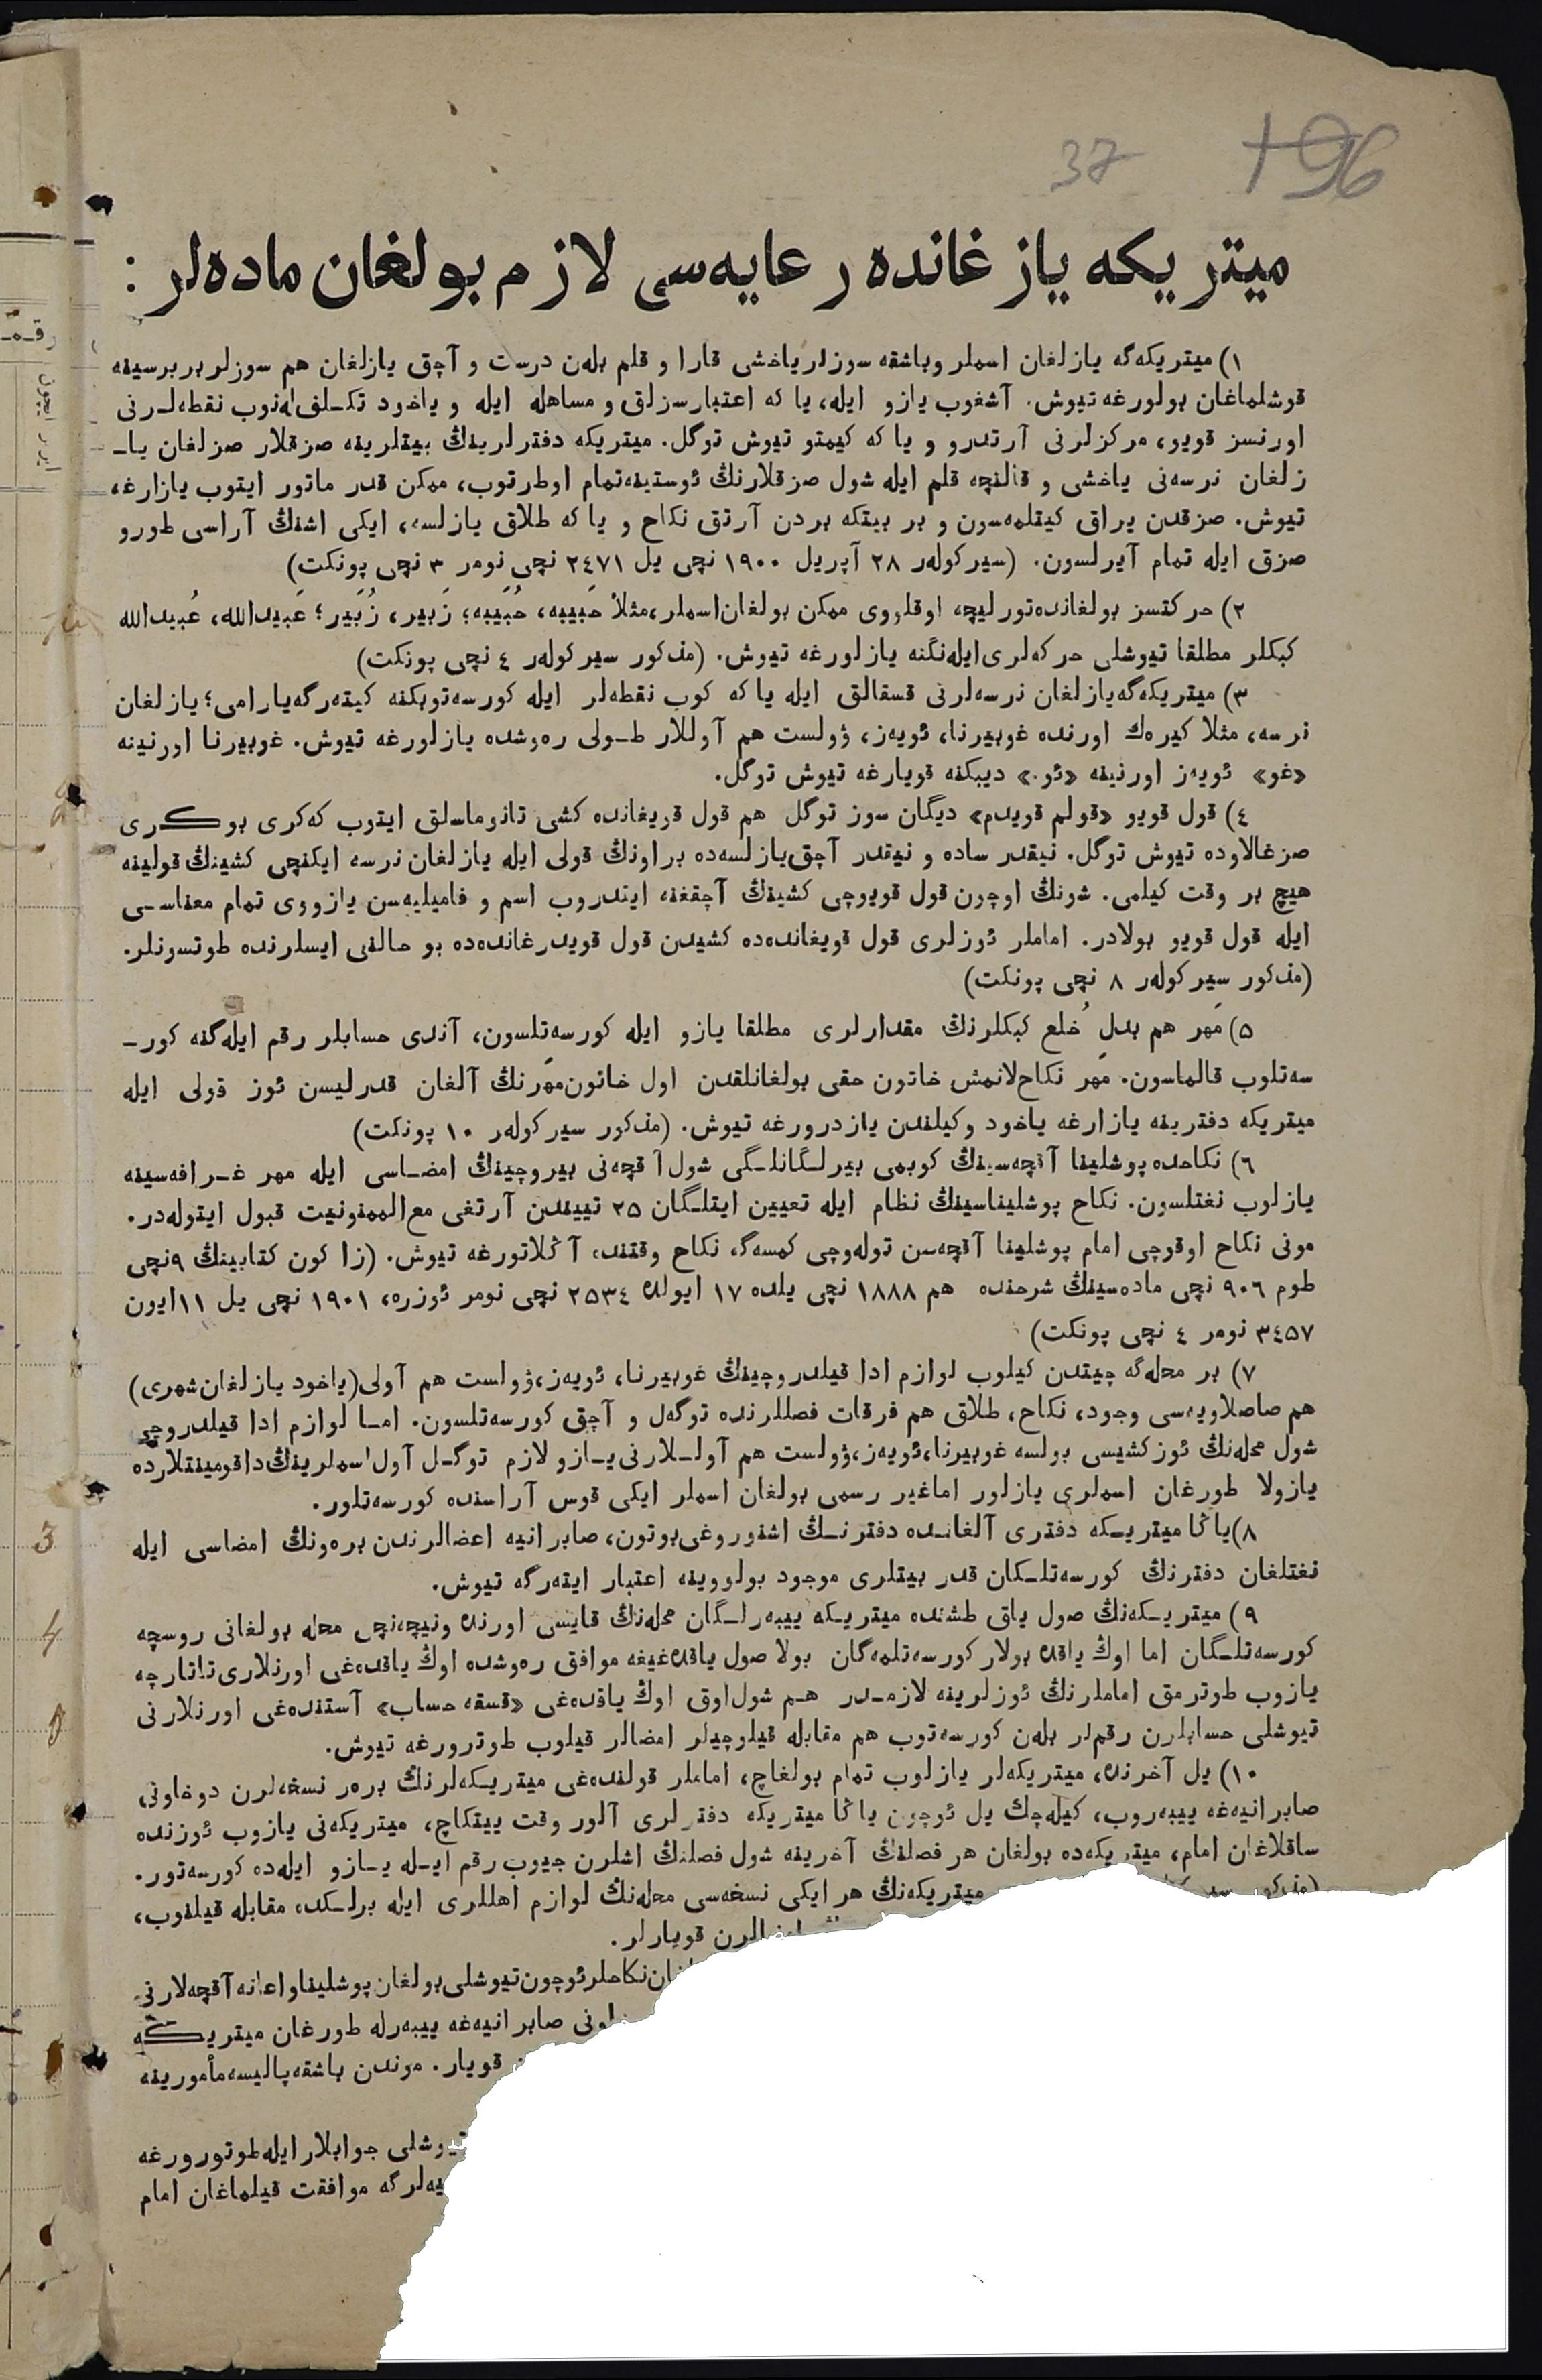 37 196
ميتريكه يازغانده رعايه‌سى لازم بولغان ماده‌لر:
١) ميتريكه‌گه يازلغان اسملر وباشقه سوزلر ياخشى قارا و قلم بله‌ن درست و آچق يازلغان هم سوزلر بربرسينه
قوشلماغان بولورغه تيوش. آشغوب يازو ايله، يا كه اعتبارسزلق و مساهله ايله و ياخود تكـلف له‌نوب نقطه‌لـرنى
اورنسز قويو، مركزلرنى آرتدرو و يا كه كيمتو تيوش توگل. ميتريكه دفترلرينڭ بيتلرينه صزقلار صزلغان ياـ
زلغان نرسه‌نى ياخشى و قالنچه قلم ايله شول صزقلارنڭ ئوستينه‌تمام اوطرتوب، ممكن قدر ماتور ايتوب يازارغه
تيوش. صزقدن يراق كيتلمه‌سون و بر بيتكه بردن آرتق نكاح و يا كه طلاق يازلسه، ايكى اشنڭ آراسى طورو
صزق ايله تمام آيرلسون. (سيركوله‌ر ٢٨ آپريل ١٩٠٠ نچى يل ٢٤٧١ نچى نومر ٣ نچى پونكت)
٢) حركتسز بولغانده‌تورليچه اوقلووى ممكن بولغان‌اسملر، مثلا حَبيبه، حُبَيبه؛ زَبير، زُبَير؛ عَبيدالله، عُبيدالله
كبكلر مطلقا تيوشلى حركه‌لرى‌ايله‌نگنه يازلورغه تيوش. (مذكور سيركوله‌ر ٤ نچى پونكت)
٣) ميتريكه‌گه‌يازلغان نرسه‌لرنى قسقالق ايله يا كه كوب نقطه‌لر ايله كورسه‌توبكنه كيته‌رگه‌يارامى؛ يازلغان
نرسه، مثلا كيره‌ك اورنده غوبيرنا، ئويه‌ز، ۋولست هم آوللار طـولى ره‌وشده يازلورغه تيوش. غوبيرنا اورنينه
«غو» ئويه‌ز اورنينه «ئو.» ديبكنه قويارغه تيوش توگل.
٤) قول قويو «قولم قويدم» ديگان سوز توگل هم قول قريغانده كشى تانوماسلق ايتوب كه‌كرى بوكـرى
صزغالاوده تيوش توگل. نيقدر ساده و نيقدر آچق‌يازلسه‌ده براونڭ قولى ايله يازلغان نرسه ايكنچى كشينڭ قولينه
هيچ بر وقت كيلمى. شونڭ اوچون قول قويوچى كشينڭ آچقغنه ايندروب اسم و فاميليه‌سن يازووى تمام معناسـى
ايله قول قويو بولادر. اماملر ئوزلرى قول قويغانده‌ده كشيدن قول قويدرغانده‌ده بو حالنى ايسلرنده طوتسونلر.
(مذكور سيركوله‌ر ٨ نچى پونكت)
٥) مَهر هم بدل خُلع كبكلرنڭ مقدارلرى مطلقا يازو ايله كورسه‌تلسون، آندى حسابلر رقم ايله‌گنه كورـ
سه‌تلوب قالماسون. مَهر نكاح‌لانمش خاتون حقى بولغانلقدن اول خاتون‌مَهرنڭ آلغان قدرليسن ئوز قولى ايله
ميتريكه دفترينه يازارغه ياخود وكيلندن يازدرورغه تيوش. (مذكور سيركوله‌ر ١٠ پونكت)
٦) نكاحده پوشلينا آقچه‌سينڭ كوبمى بيرلـگانلـگى شول آقچه‌نى بيروچينڭ امضـاسى ايله مهر غـرافه‌سينه
يازلوب نغتلسون. نكاح پوشليناسينڭ نظام ايله تعيين ايتلـگان ٢٥ تييندن آرتغى مع‌الممنونيت قبول ايتوله‌در.
مونى نكاح اوقوچى امام پوشلينا آقچه‌سن توله‌وچى كمسه‌گه نكاح وقتنده آڭلاتورغه تيوش. (زاكون كتابينڭ ٩نچى
طوم ٩٠٦ نچى ماده‌سينڭ شرحنده هم ١٨٨٨ نچى يلده ١٧ ايولده ٢٥٣٤ نچى نومر ئوزره، ١٩٠١ نچى يل ١١ايون
٣٤٥٧ نومر ٤ نچى پونكت)
٧) بر محله‌گه چيتدن كيلوب لوازم ادا قيلدروچينڭ غوبيرنا، ئويه‌ز، ۋولست هم آولى(ياخود يازلغان شهرى)
هم صاصلاويه‌سى وجود، نكاح، طلاق هم فرقات فصللرنده توگه‌ل و آچق كورسه‌تلسون. امـا لوازم ادا قيلدروچى
شول محله‌نڭ ئوز كشيسى بولسه غوبيرنا، ئويه‌ز، ۋولست هم آولـلارنى يـازو لازم توگـل آول اسملرينڭ داقومينتلارده
يازولا طورغان اسملرى يازلور اماغير رسمى بولغان اسملر ايكى قوس آراسنده كورسه‌تلور.
٨) ياڭا ميتريـكه دفترى آلغانـده دفترنـڭ اشنوروغى بوتون، صابرانيه اعضالرندن بره‌ونڭ امضاسى ايله
نغتلغان دفترنڭ كورسه‌تلـكان قدر بيتلرى موجود بولووينه اعتبار ايته‌رگه تيوش.
٩) ميتريـكه‌نڭ صول ياق طشنده ميتريـكه ييبه‌رلـگان محله‌نڭ قايسى اورنده ونيچه‌نچى محله بولغانى روسچه
كورسه‌تلـگان اما اوڭ ياقده بولار كورسه‌تلمه‌گان بولا صول ياقده‌غيغه موافق ره‌وشده اوڭ ياقده‌غى اورنلارى تاتارچه
يازوب طوترمق اماملرنڭ ئوزلرينه لازمـدر هـم شول‌اوق اوڭ ياقده‌غى «قسقه حساب» آستنده‌غى اورنلارنى
تيوشلى حسابلرن رقم‌لر بله‌ن كورسه‌توب هم مقابله قيلوچيلر امضالر قيلوب طوترورغه تيوش.
١٠) يل آخرنده ميتريكه‌لر يازلوب تمام بولغاچ، اماملر قولنده‌غى ميتريـكه‌لرنڭ بره‌ر نسخه‌لرن دوخاونى
صابرانيه‌غه ييبه‌روب، كيله‌چك يل ئوچون ياڭا ميتريكه دفترلرى آلور وقت ييتكاچ، ميتريكه‌نى يازوب ئوزنده
ساقلاغان امام، ميتريكه‌ده بولغان هر فصلنڭ آخرينه شول فصلنڭ اشلرن جيوب رقم ايـله يـازو ايله‌ده كورسه‌تور.
ميتريكه‌نڭ هر ايكى نسخه‌سى محله‌نڭ لوازم اهللرى ايله برلـكده مقابله قيلنوب،
قويارلر.
نكاحلر ئوچون تيوشلى بولغان پوشلينا و اعانه آقچه‌لارنى
صابرانيه‌غه ييبه‌رله طورغان ميتريـكه
قويار. موندن باشقه پاليسه مأمورينه
تيوشلى جوابلار ايله طوتورورغه
موافقت قيلماغان امام